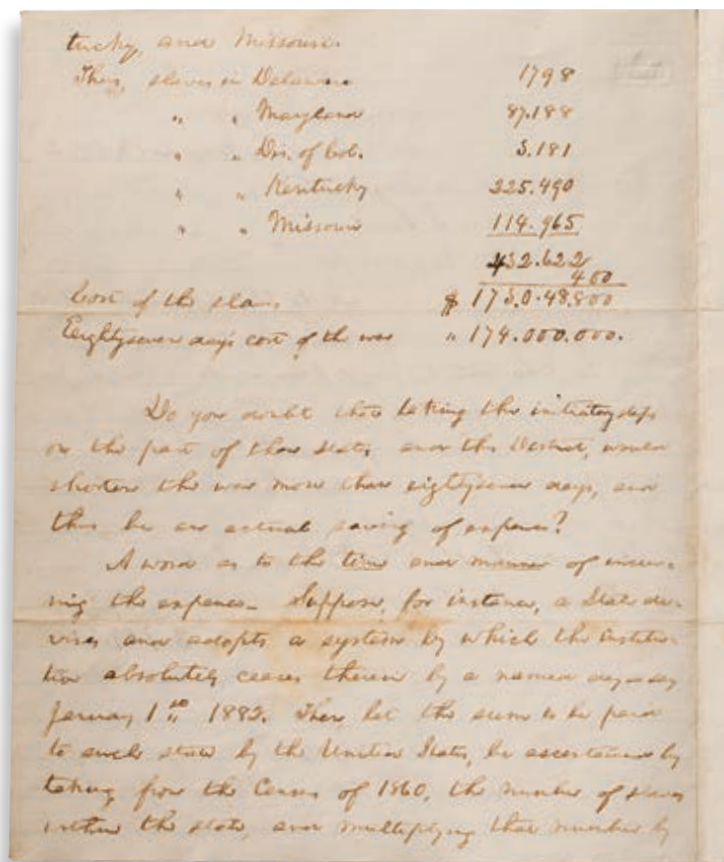 tucky, and Missouri.
Thus, slaves in Delaware 1798
" " Maryland 87.188
" " Dis. of Col. 3.181
" " Kentucky 225.490
" " Missouri 114.965
432.622
400
Cost of the slaves, $ 173.048.800
Eightyseven days cost of the war " 174.000.000.
Do you doubt that taking the initiatory steps
on the part of those states and this District, would
shorten the war more than eightyseven days, and
thus be an actual saving of expense?
A word as to the time and manner of incur-
ring the expence. Suppose, for instance, a State de-
vises and adopts a system by which the institu-
tion absolutely ceases therein by a named day—say
January 1st 1882. Then, let the sum to be paid
to such state by the United States, be ascertained by
taking from the Census of 1860, the number of slaves
within the state, and multiplying that number by